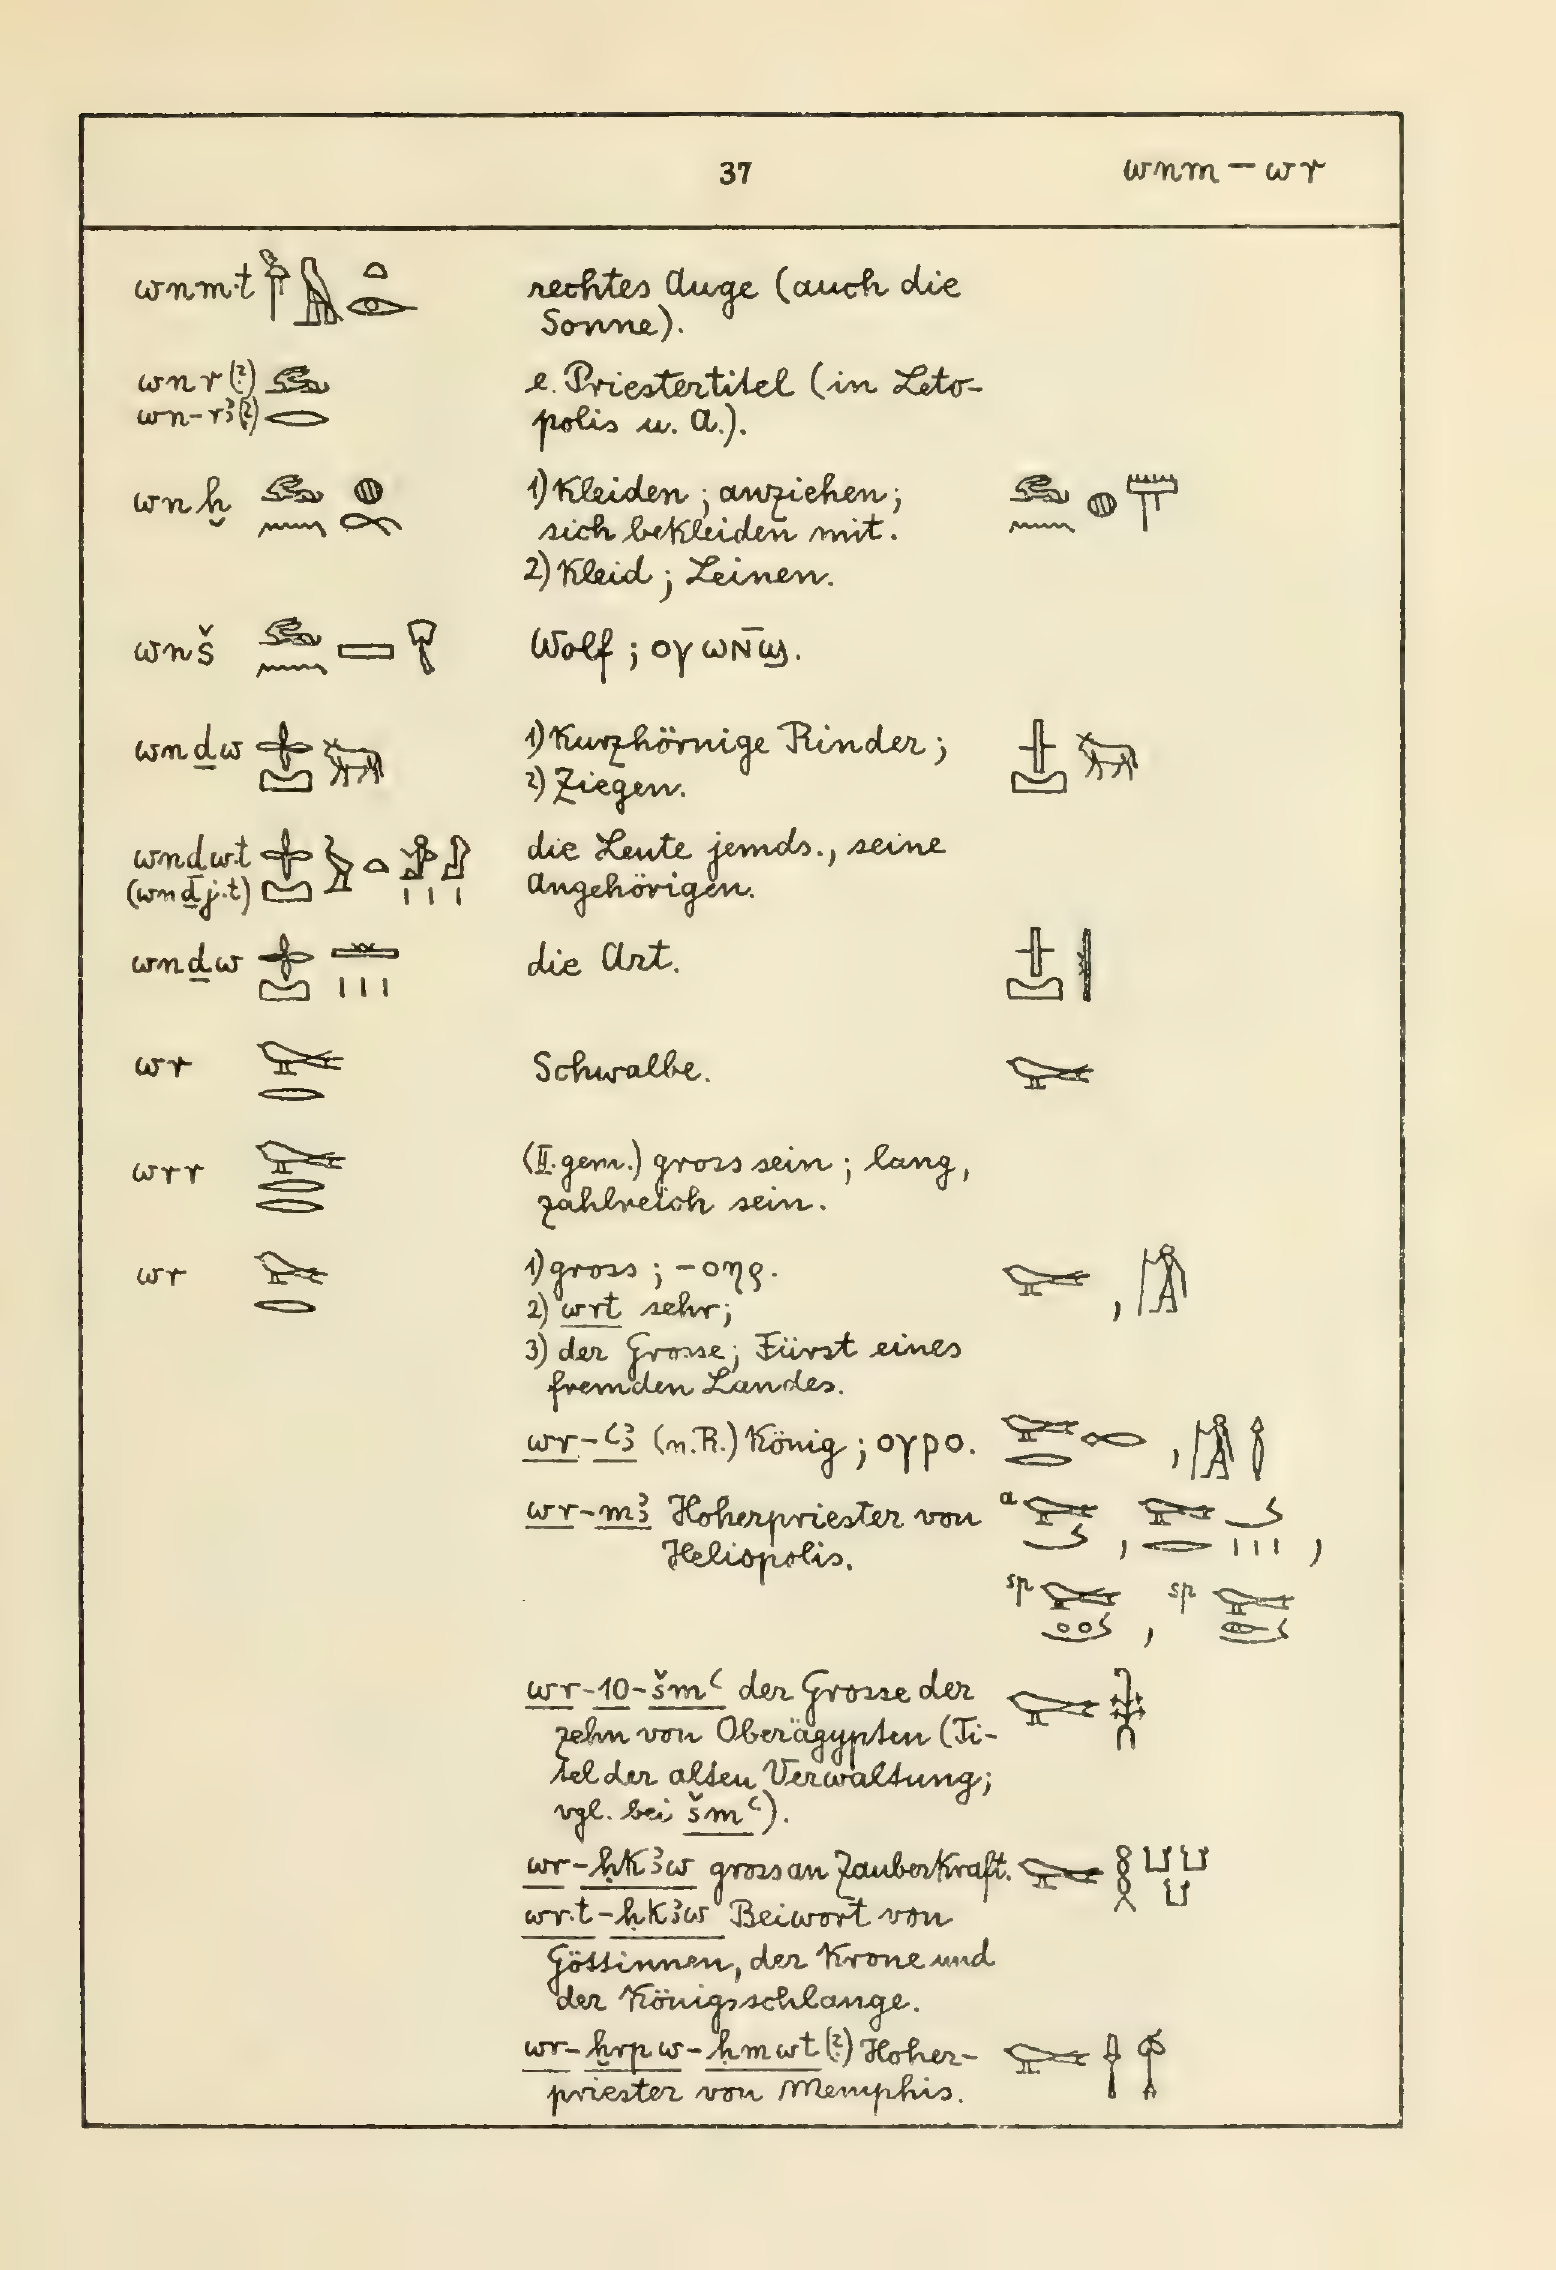 37 wnm — wr
wnm.t rechtes Auge (auch die
Sonne).
wnr(?) e. Priestertitel (in Leto-
wn-rꜣ(?) polis u. A.).
wnḫ 1) Kleiden; anziehen;
sich bekleiden mit.
2) Kleid; Leinen.
wnš Wolf; ⲟⲩⲱⲛ̄ϣ.
wnḏw 1) Kurzhörnige Rinder;
2) Ziegen.
wnḏw.t die Leute jemds., seine
(wnḏj.t) Angehörigen.
wnḏw die Art.
wr Schwalbe.
wrr (II. gem.) gross sein; lang,
zahlreich sein.
wr 1) gross; -οης.
2) wrt sehr;
3) der Grosse; Fürst eines
fremden Landes.
wr-ꜥꜣ (n.R.) König; ⲟⲩⲣⲟ.
wr-mꜣ Hoherpriester von a
Heliopolis.
sp sp
wr-10-šmꜥ der Grosse der
zehn von Oberägypten (Ti-
tel der alten Verwaltung;
vgl. bei šmꜥ).
wr-ḥkꜣw gross an Zauberkraft.
wr.t-ḥkꜣw Beiwort von
Göttinnen, der Krone und
der Königsschlange.
wr-ḫrpw-ḥmwt(?) Hoher-
priester von Memphis.